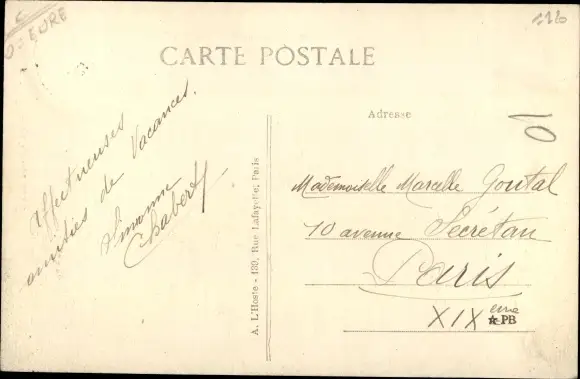 EURE
116
CARTE POSTALE
Adresse
Affectueuses
amitiés de Vacances.
Simonne
Chabert
A. L'Hoste - 139, Rue Lafayette; Paris
Mademoiselle Marcelle Goutal
70 avenue Secrétan
Paris
XIXème
PB